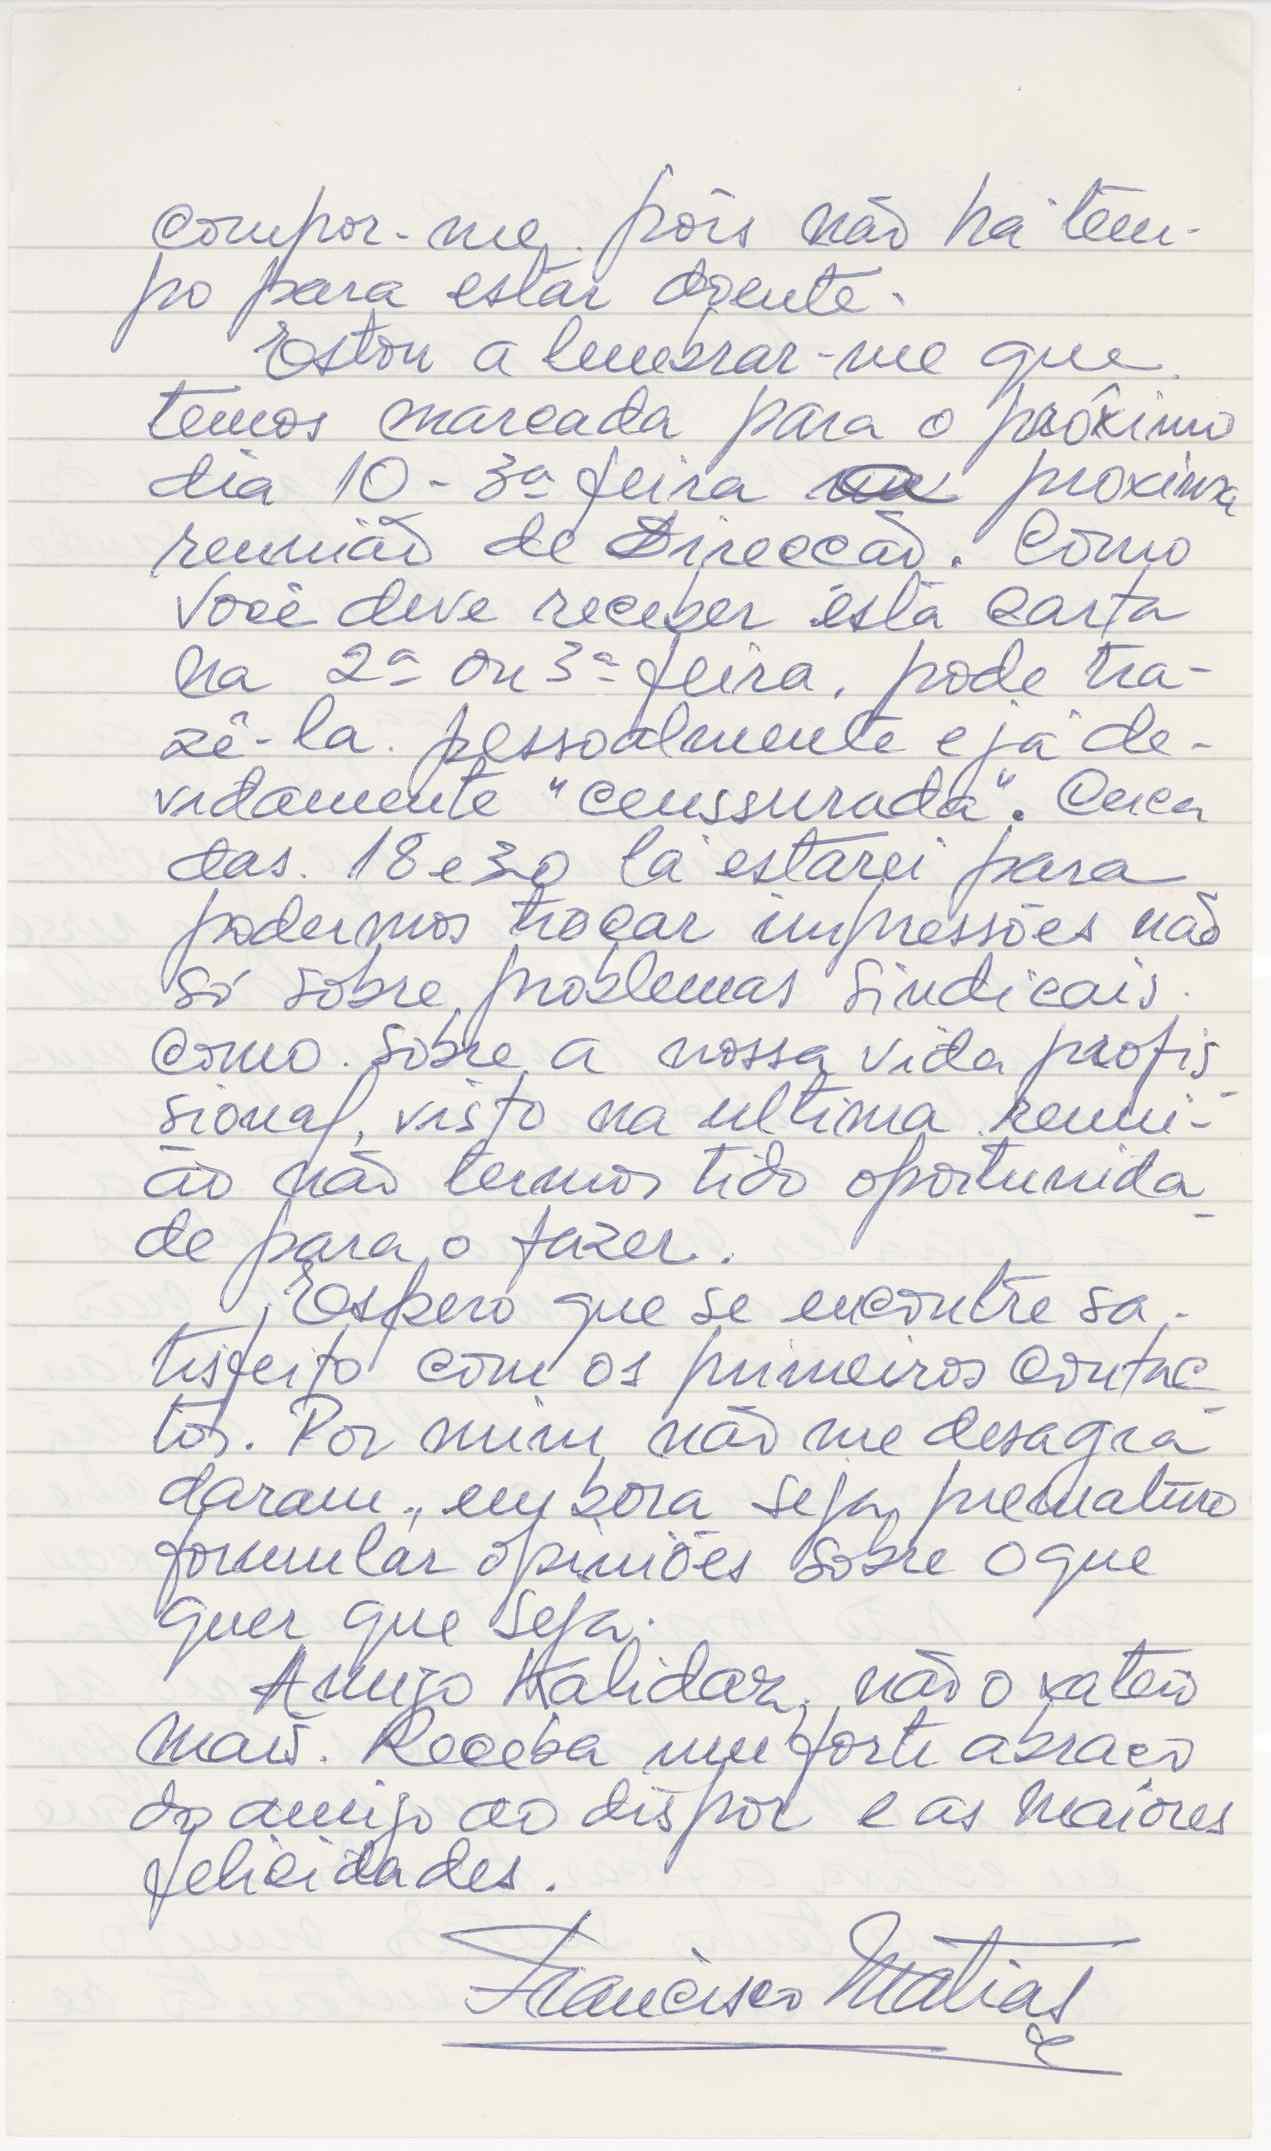 compor-me, pois não há tem-
po para estar doente.
Estou a lembrar-me que
temos marcada para o próximo
dia 10 - 3ª feira a proxima
reunião de Direcção. Como
você deve receber esta carta
na 2ª ou 3ª feira, pode tra-
zê-la pessoalmente e já de-
vidamente "censsurada". Cerca
das 18 e 30 lá estarei para
podermos trocar impressões não
só sobre problemas sindicais
como sobre a nossa vida profis-
sional, visto na ultima reuni-
ão não termos tido oportunida-
de para o fazer.
Espero que se encontre sa-
tisfeito com os primeiros contac-
tos. Por mim, não me desagra-
daram, embora seja prematuro
formular opiniões sobre o que
quer que seja.
Amigo Halidaz, não o xateio
mais. Receba um forte abraço
do amigo ao dispor e as maiores
felicidades.
Francisco Matias